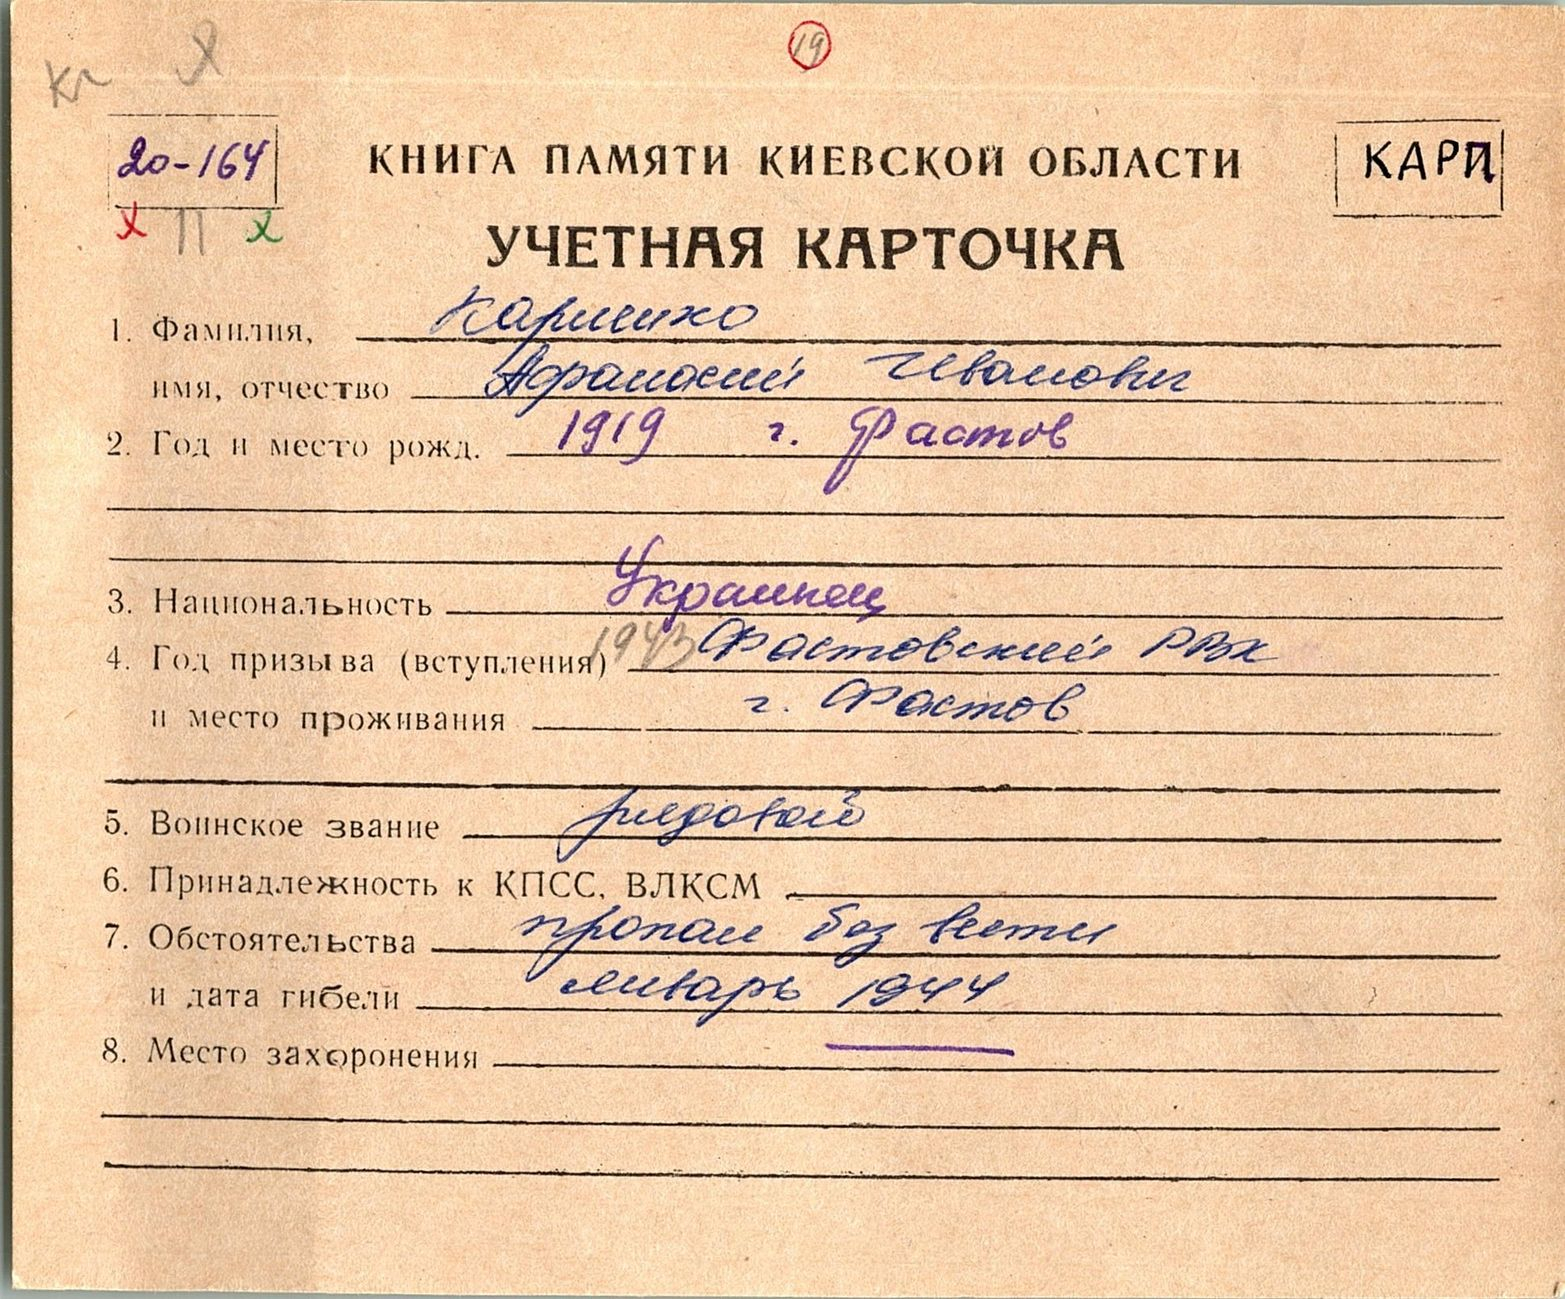 19
Кп
20-164
КНИГА ПАМЯТИ КИЕВСКОЙ ОБЛАСТИ
КАРП
П
УЧЕТНАЯ КАРТОЧКА
1. Фамилия, Карпенко
имя, отчество Афанасий Иванович
2. Год и место рожд. 1919 г. Фастов
3. Национальность Украинец
4. Год призыва (вступления) 1943 Фастовский РВК
и место проживания г. Фастов
5. Воинское звание рядовой
6. Принадлежность к КПСС, ВЛКСМ
7. Обстоятельства пропал без вести
и дата гибели январь 1944
8. Место захоронения